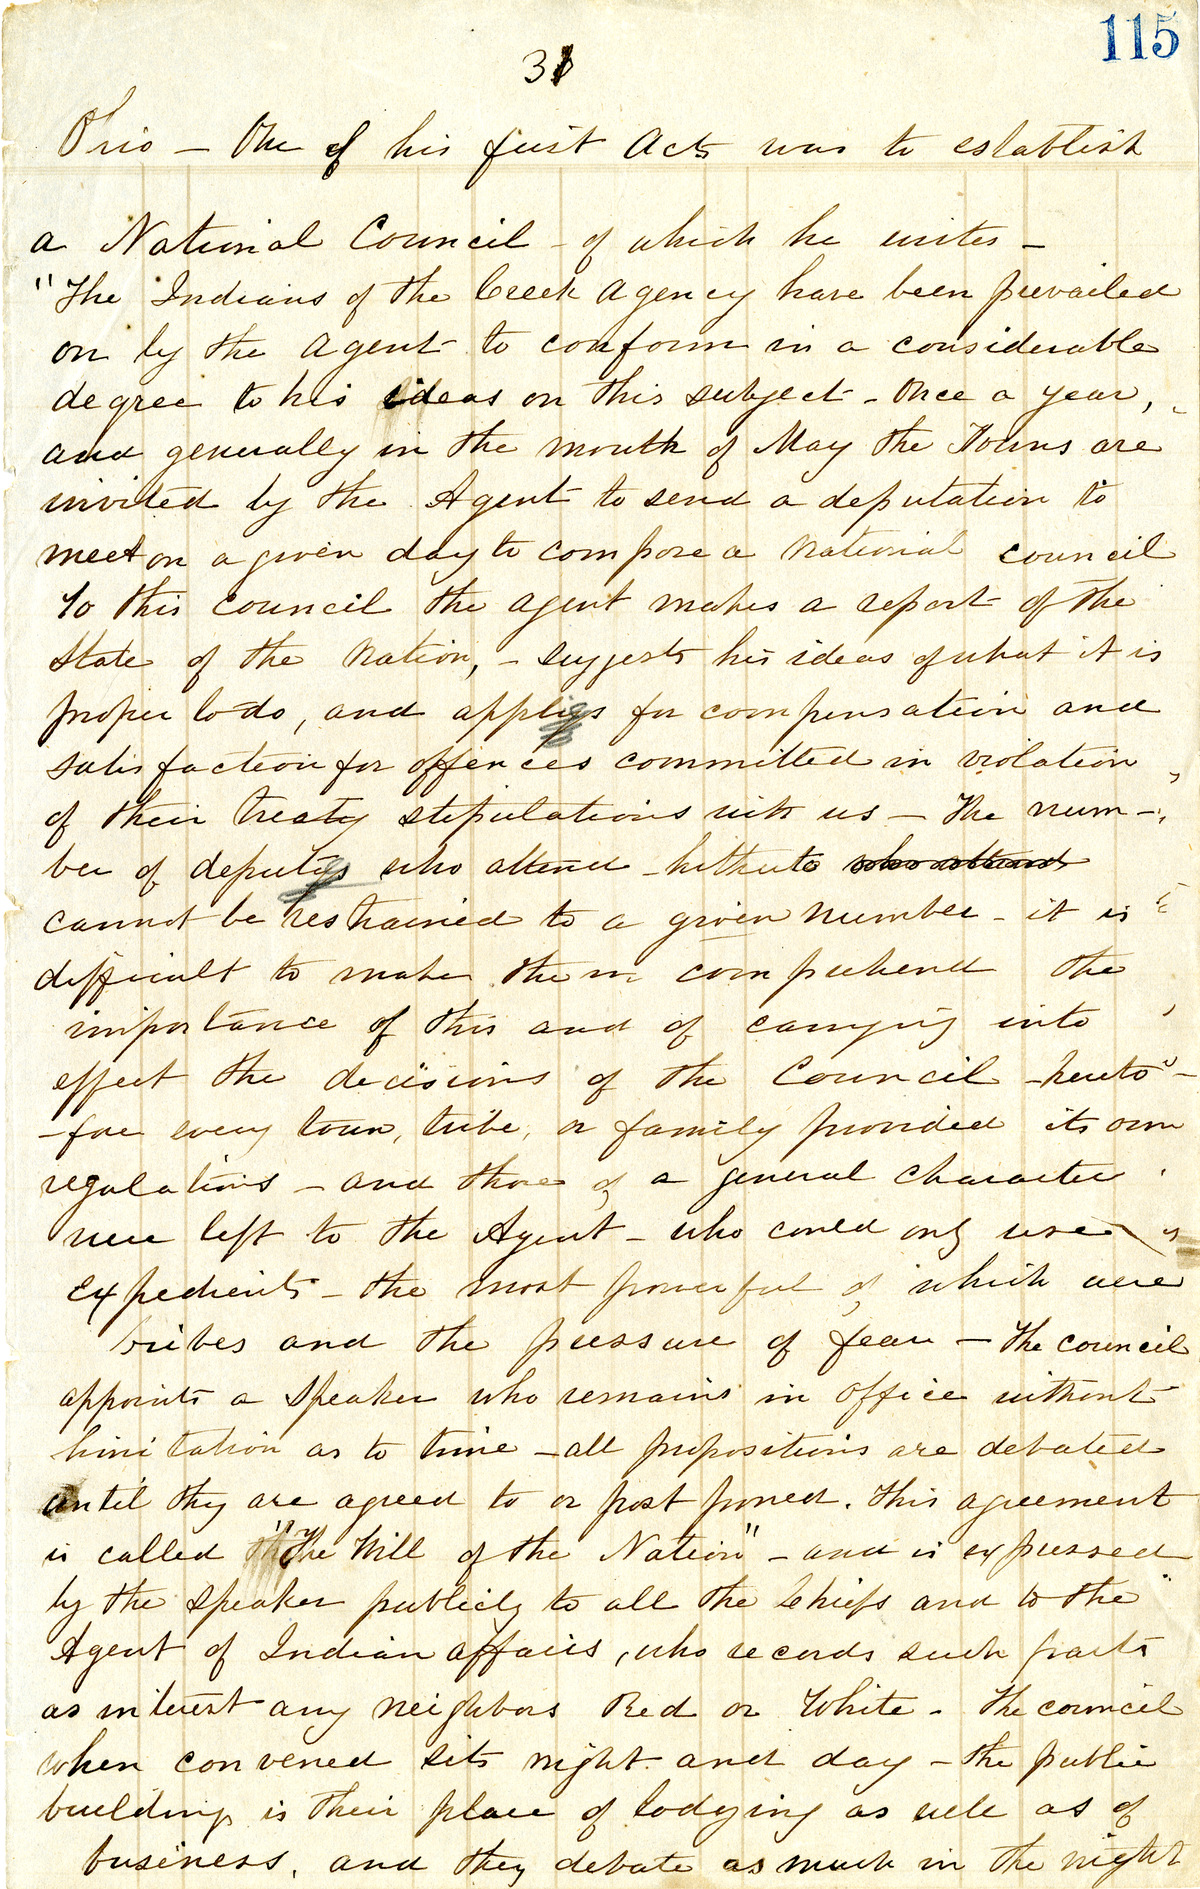 115
31
Ohio — One of his first Acts was to establish
a National Council - of which he writes —
"The Indians of the Creek Agency have been prevailed
on by the Agent to conform in a considerable
degree to his ideas on this subject - Once a year,
and generally in the month of May the Towns are
invited by the Agent to send a deputation to
meet on a given day to compose a National council
To this council the Agent makes a report of the
State of the Nation, - suggests his ideas of what it is
proper to do, and applys for compensation and
satisfaction for offences committed in violation
of their treaty stipulations with us — The num-
ber of deputys who attend - hitherto who attend
cannot be restrained to a given number - it is
difficult to make them comprehend the
importance of this and of carrying into
effect the decisions of the Council - hereto-
-fore every town, tribe, or family provided its own
regulations - and those of a general character
were left to the Agent - who could only use
expedients - the most powerful of which were
bribes and the pressure of fear - The council
appoints a Speaker who remains in office without
limitation as to time - all propositions are debated
until they are agreed to or post poned. This agreement
is called "The Will of the Nation" - and is expressed
by the Speaker publicly to all the Chiefs and to the
Agent of Indian affairs, who records such parts
as interest any neighbors Red or White - The council
when convened sits night and day - the public
building is their place of lodging as well as of
business, and they debate as much in the night